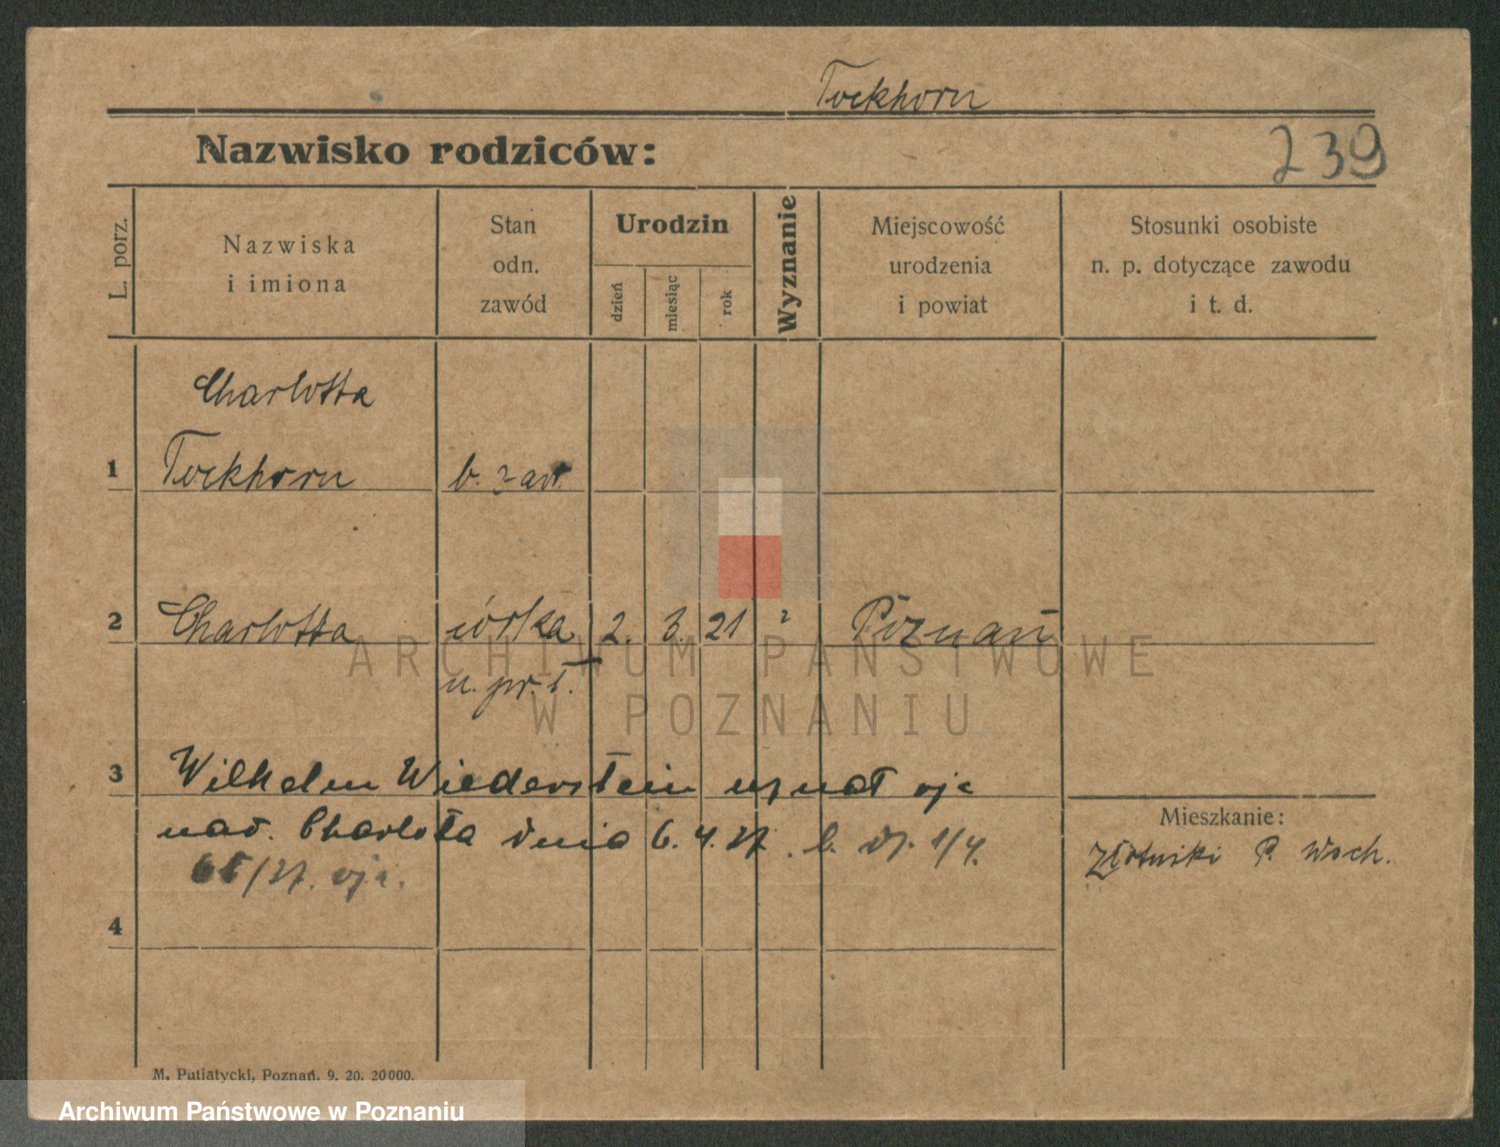 Tockhorn
Nazwisko rodziców:
239
L. porz.
Nazwiska
i imiona
Stan
odn.
zawód
Urodzin
dzień
miesiąc
rok
Wyznanie
Miejscowość
urodzenia
i powiat
Stosunki osobiste
n. p. dotyczące zawodu
i t. d.
Charlotta
1 Tockhorn b. zaw.
2 Charlotta córka 2. 3. 21 ? Poznań
n. pr. T.
3 Wilhelm Wiederstein uznał ojc
nad. Charlotta dnia 6. 4. 27. b. 1/4.
65/27. ojc.
4
Mieszkanie:
Złotniki P. Wsch.
M. Putiatycki, Poznań. 9. 20. 20000.
ARCHIWUM PAŃSTWOWE
W POZNANIU
Archiwum Państwowe w Poznaniu